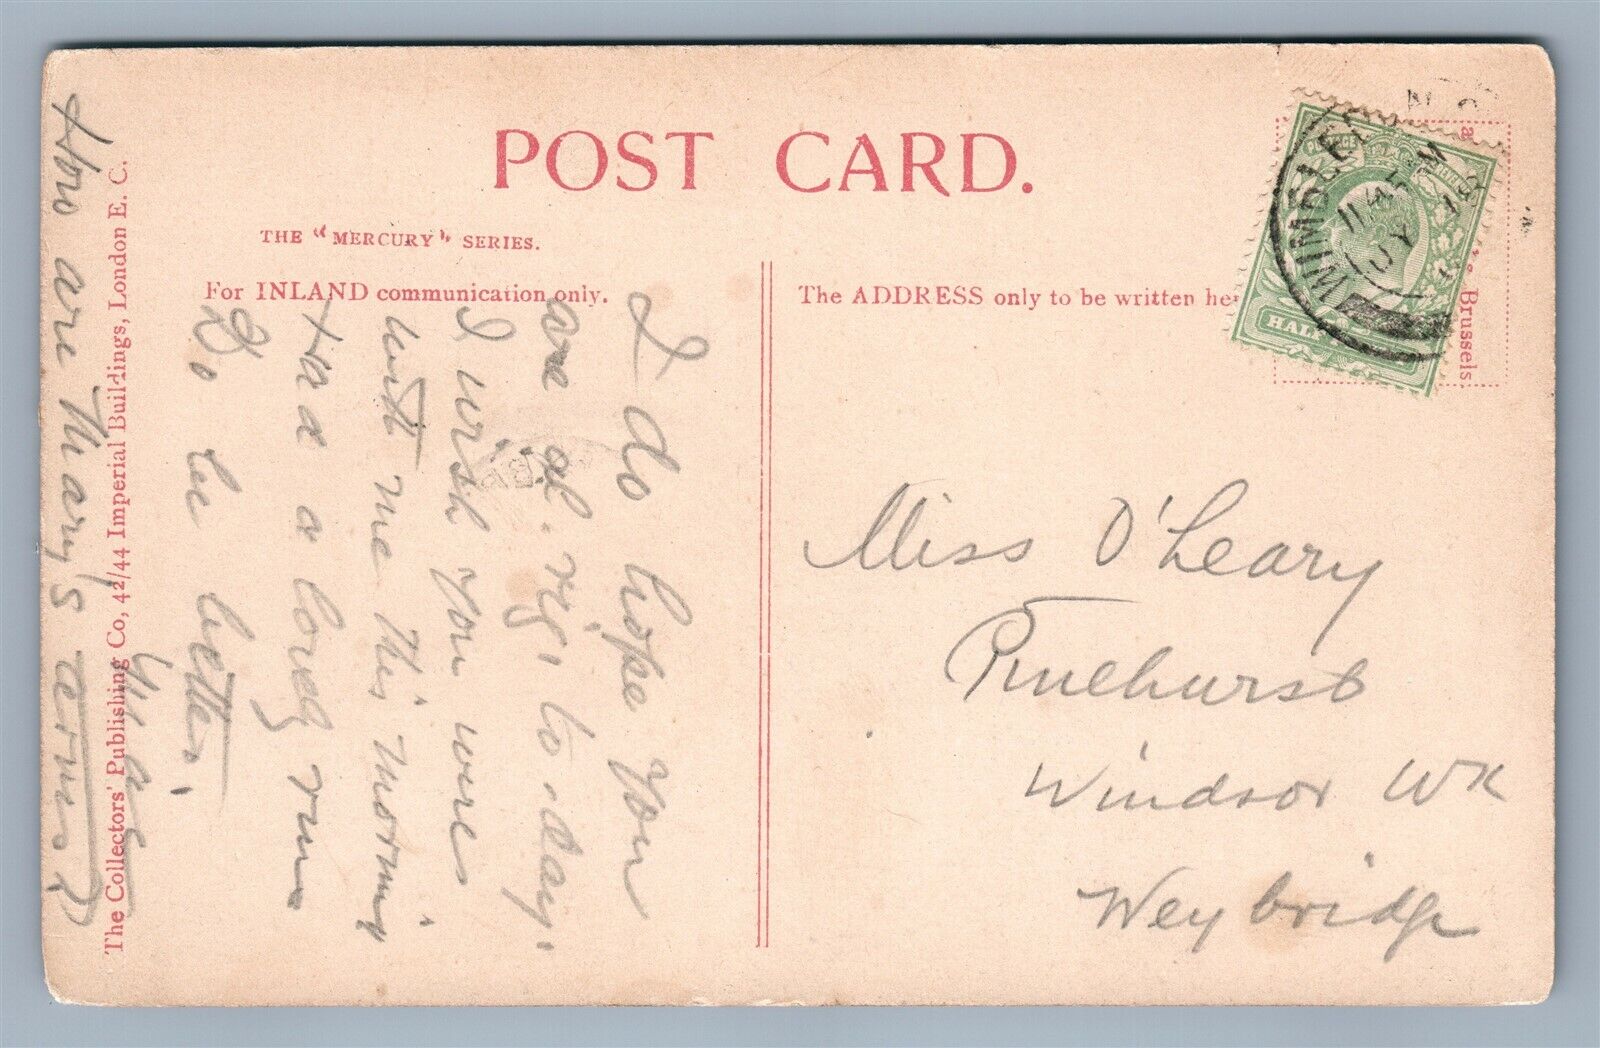 POST CARD.
THE "MERCURY" SERIES.
For INLAND communication only.
The ADDRESS only to be written her
Brussels.
WIMBLED
11 45 AM
JY 18
POSTAGE
HALF
I do hope you
are al. rig. to.day.
I wish you were
with me this morning
Had a long run
Do be better.
How are Mary's terms?
The Collectors' Publishing Co, 42/44 Imperial Buildings, London E. C.
Miss O'Leary
Pinehurst
Windsor WK
Weybridge